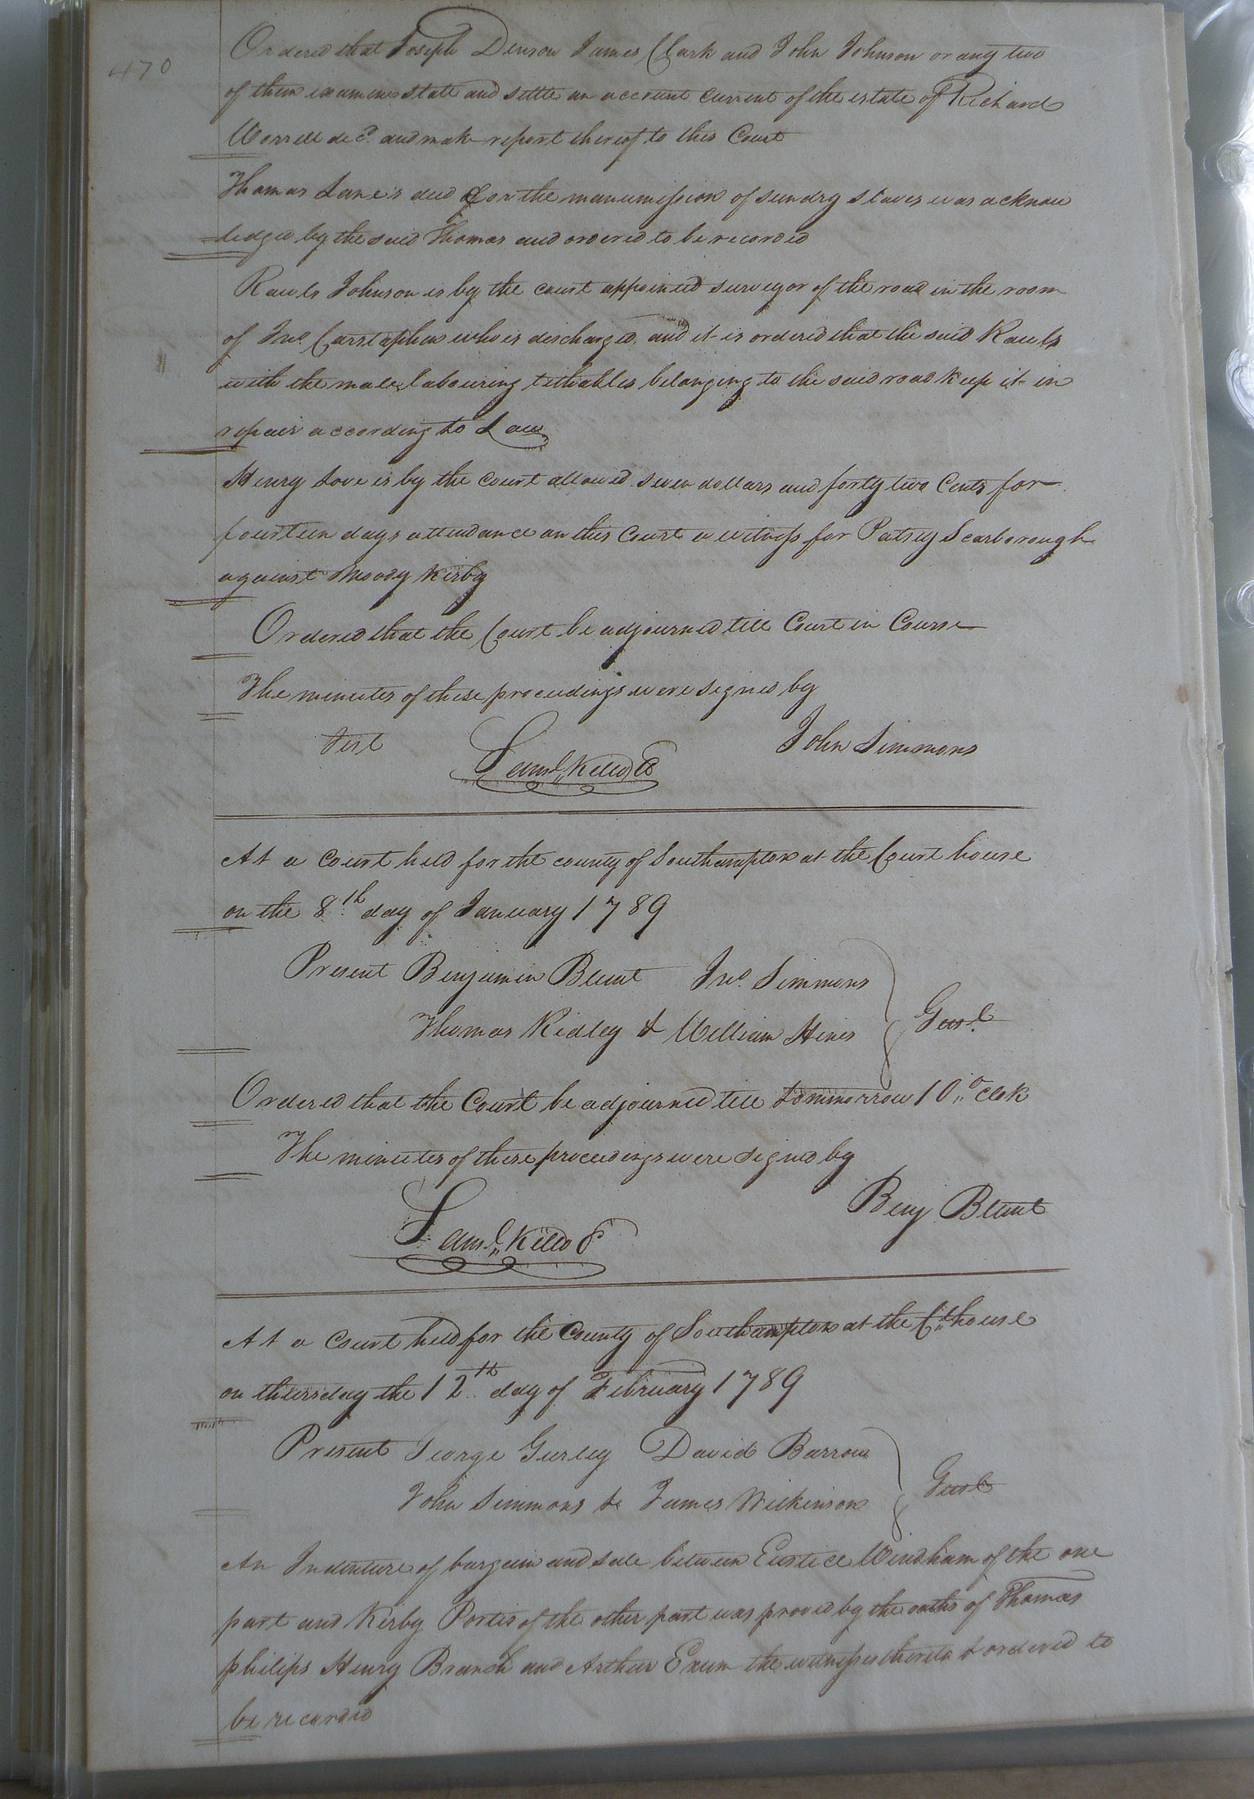 470
Ordered that Joseph Denson James Clark and John Johnson or any two
of them examine state and settle an account current of the estate of Richard
Worrell decd. and make report thereof to this Court
Thomas Lane's deed for the manumission of sundry slaves was acknow
ledged by the said Thomas and ordered to be recorded
Rawls Johnson is by the court appointed surveyor of the road in the room
of Jno. Carstaphen who is discharged, and it is ordered that the said Rawls
with the male labouring tithables belonging to the said road keep it in
repair according to Law
Henry Love is by the court allowed seven dollars and forty two Cents for
fourteen days attendance on this Court a witness for Patsey Scarborough
against Moody Kirby
Ordered that the Court be adjourned till Court in Course
The minutes of these proceedings were signed by
Test Saml. Kello John Simmons
At a court held for the county of Southampton at the Court house
on the 8th day of January 1789
Present Benjamin Blunt Jno. Simmons
Thomas Ridley & William Hines Gent.
Ordered that the Court be adjourned till tommorrow 10 o clok
The minutes of these proceedings were signed by
Saml. Kello Benj Blunt
At a court held for the County of Southampton at the Ct. house
on thursday the 12th. day of February 1789
Present George Gurley David Barrow
John Simmons & James Wilkinson Gent
An Indenture of bargain and sale between Eustice Windham of the one
part and Kirby Portis of the other part was proved by the oaths of Thomas
philips Henry Branch and Arthur Exum the witnesses thereto & ordered to
be recorded